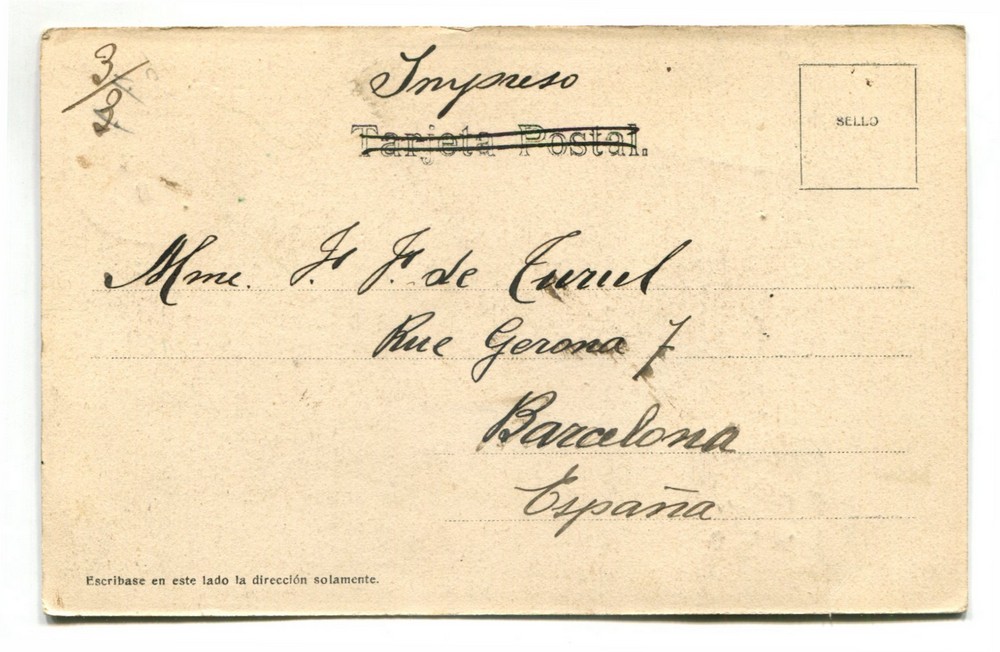 3/8
Impreso
Tarjeta Postal.
SELLO
Mme. F. F. de Turul
Rue Gerona 7
Barcelona
España
Escríbase en este lado la dirección solamente.